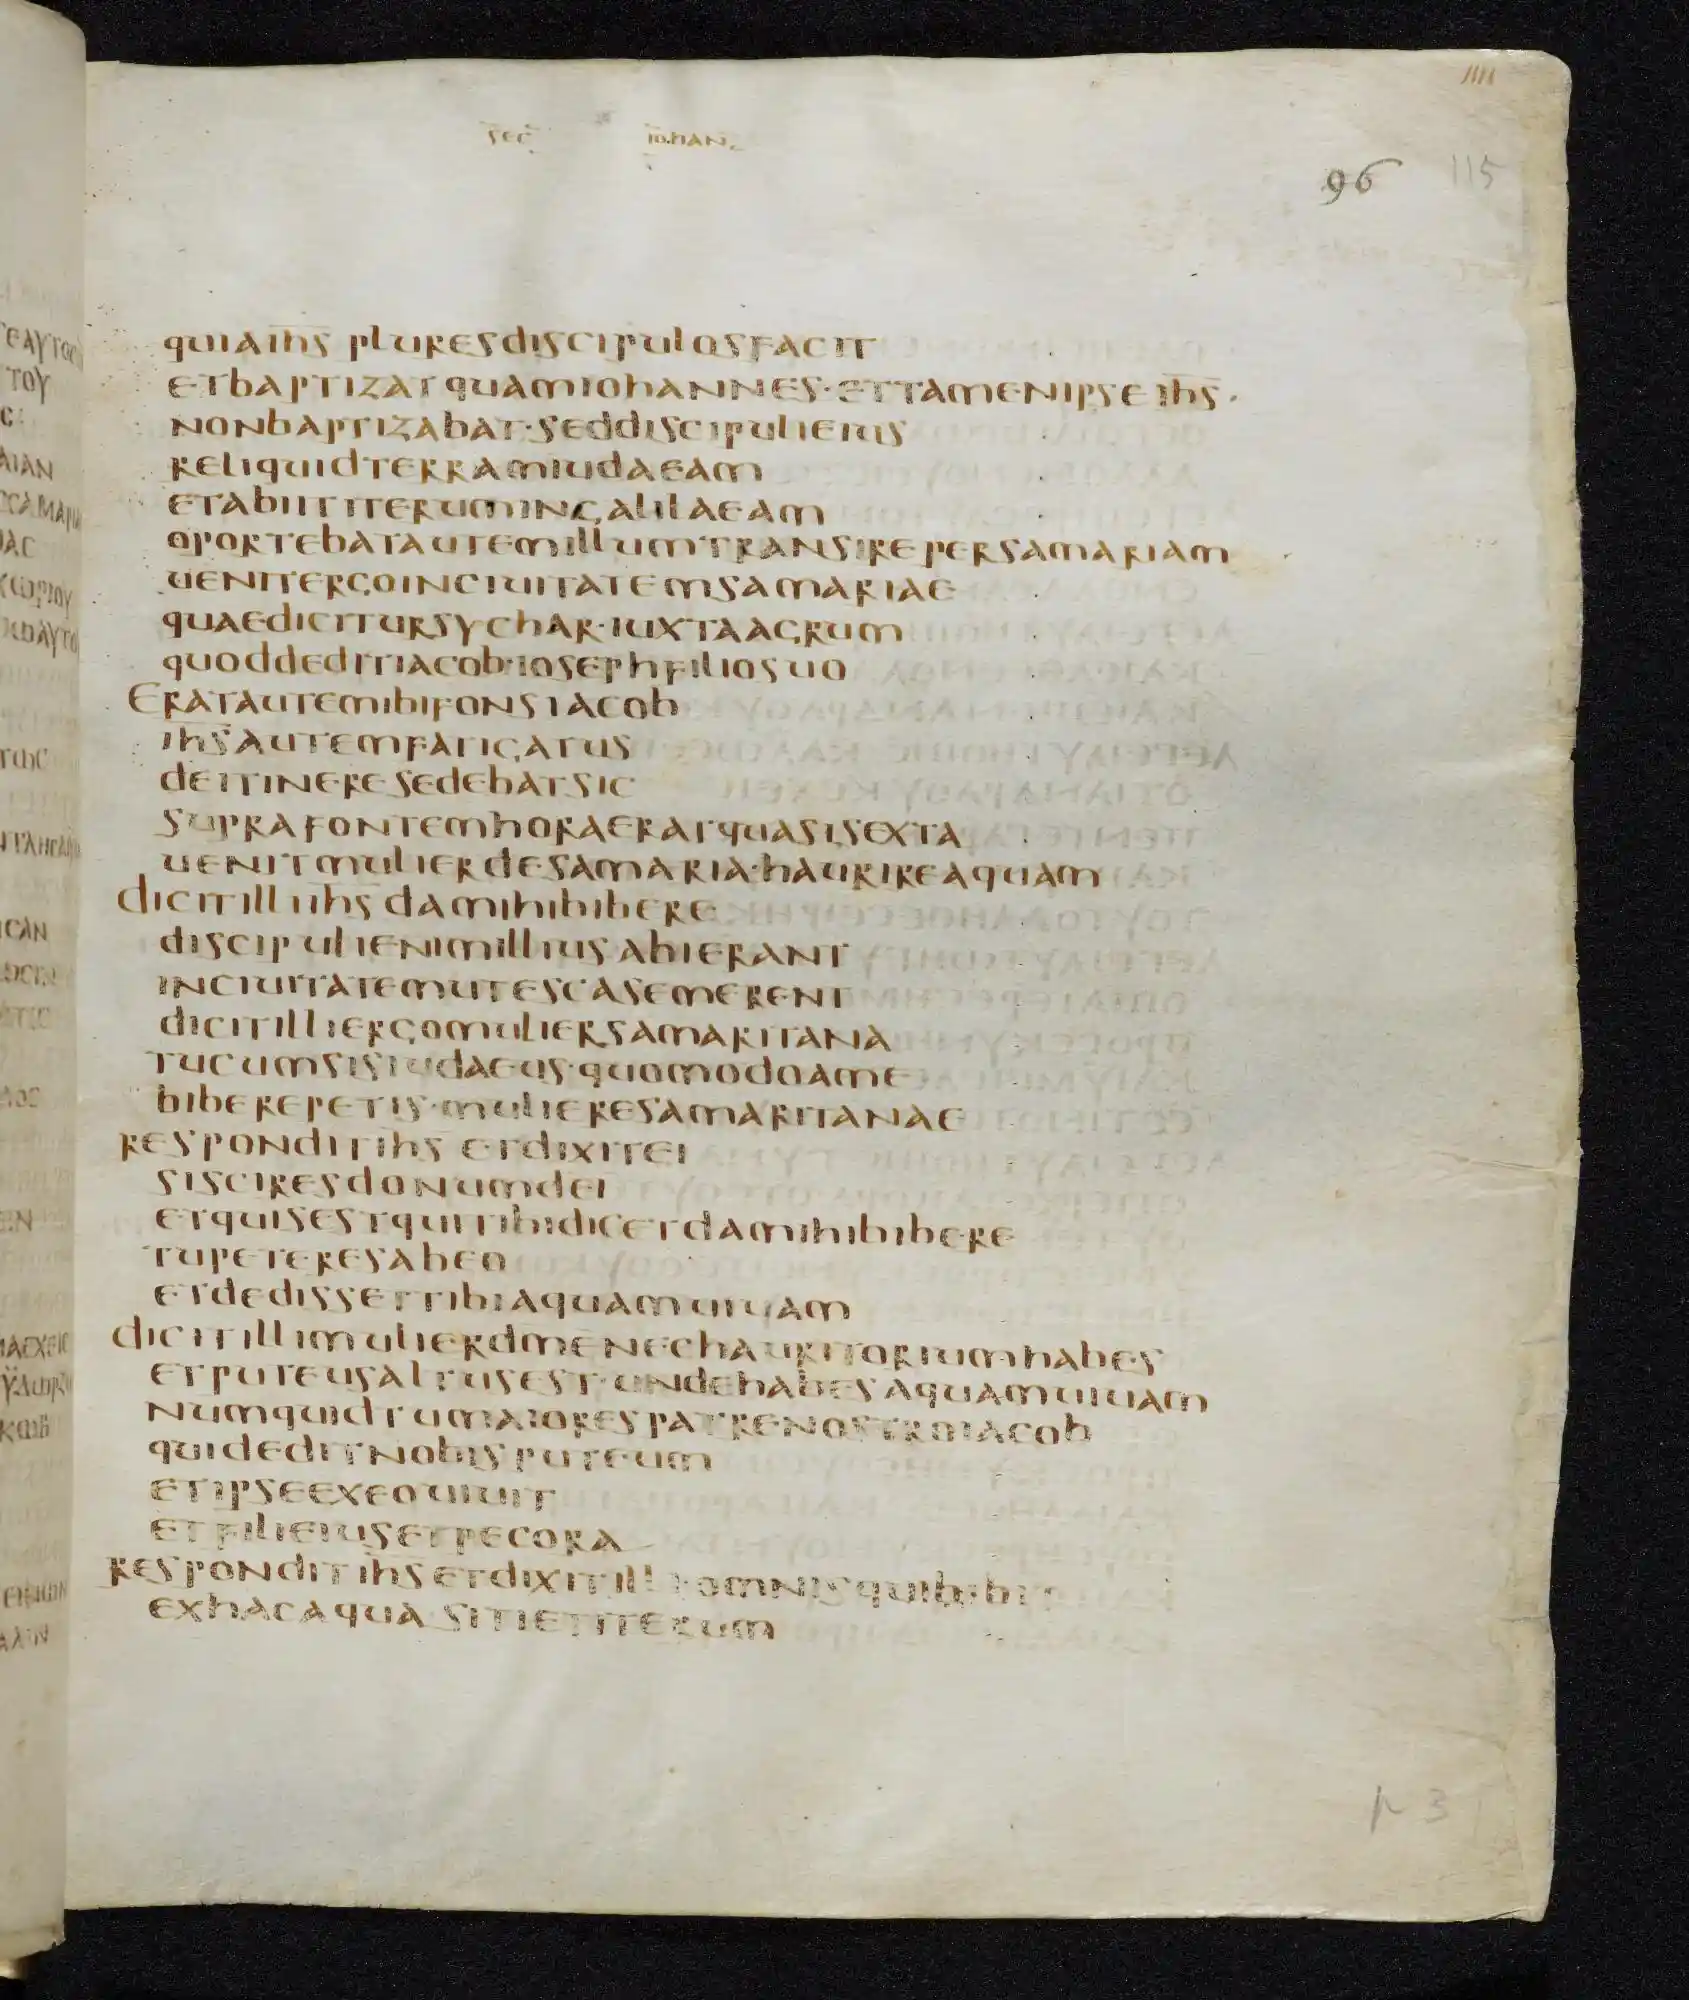 IIII
sec iohan
96 115
quiaihs pluresdiscipulosfacit
etbaptizatquamiohannes·ettamenipseihs·
nonbaptizabat·seddiscipulieius
reliquidterramiudaeam
etabiititerumingalilaeam
oportebatautemillumtransirepersamariam
uenitergoinciuitatemsamariae
quaediciturSychar·iuxtaagrum
quoddeditiacob·iosephfiliosuo
eratautemibifonsiacob
ihsautemfatigatus
deitineresedebatsic
suprafontemhoraeratquasisexta
uenitmulierdesamaria·haurireaquam
dicitilliihs damihibibere
discipulienimilliusabierant
inciuitatemutescasemerent
dicitilliergomuliersamaritana
tucumsisiudaeus·quomodoame
biberepetis·mulieresamaritanae
responditihs etdixitei
sisciresdonumdei
etquisestquitibidicetdamihibibere
tupeteresabeo
etdedissettibiaquamuiuam
dicitillimulierdmenechauritoriumhabes
etputeusaltusest·undehabesaquamuiuam
numquidtumaiorespatrenostroiacob
quideditnobisputeum
etipseexeouiuit
etfilieiusetpecora
responditihsetdixitilli omnisquibibi
exhacaqua sitietiterum